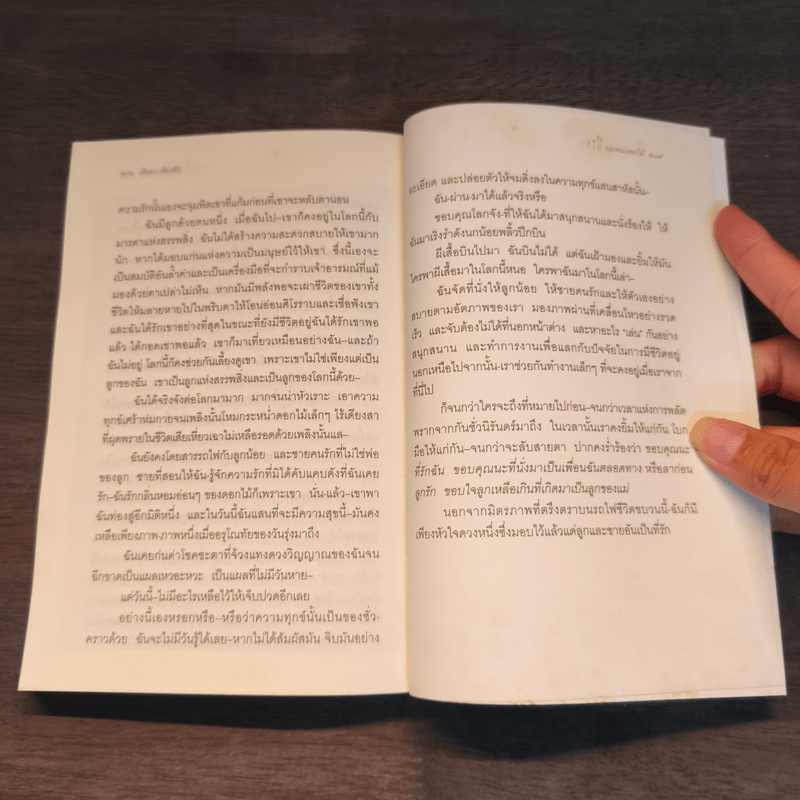 ความรักนั้นเองจะจุมพิตเขาที่แก้มก่อนที่เขาจะหลับตานอน
ฉันมีลูกด้วยคนหนึ่ง เมื่อฉันไป–เขาก็คงอยู่ในโลกนี้กับ
มารดาแห่งสรรพสิ่ง ฉันไม่ได้สร้างความสะดวกสบายให้เขามาก
นัก หากได้มอบแก่นแห่งความเป็นมนุษย์ไว้ให้เขา ซึ่งนี้เองจะ
เป็นสมบัติอันล้ำค่าและเป็นเครื่องมือที่จะกำราบเจ้าอารมณ์ที่แม้
มองด้วยตาเปล่าไม่เห็น หากมันมีพลังพอจะเผาชีวิตของเขาทั้ง
ชีวิตให้มลายหายไปในพริบตาให้โอนอ่อนศิโรราบและเชื่อฟังเขา
และฉันได้รักเขาอย่างที่สุดในขณะที่ยังมีชีวิตอยู่ฉันได้รักเขาพอ
แล้ว ได้กอดเขาพอแล้ว เขาก็มาเที่ยวเหมือนอย่างฉัน–และถ้า
ฉันไม่อยู่ โลกนี้ก็คงช่วยกันเลี้ยงดูเขา เพราะเขาไม่ใช่เพียงแต่เป็น
ลูกของฉัน เขาเป็นลูกแห่งสรรพสิ่งและเป็นลูกของโลกนี้ด้วย–
ฉันได้จริงจังต่อโลกมามาก มากจนน่าหัวเราะ เอาความ
ทุกข์เศร้าห่มกายจนเพลิงนั้นโหมกระหน่ำดอกไม้เล็กๆ ไร้เดียงสา
ที่ผุดพรายในชีวิตเสียเหี่ยวเฉาไม่เหลือรอดด้วยเพลิงนั้นแล–
ฉันยังคงโดยสารรถไฟกับลูกน้อย และชายคนรักที่ไม่ใช่พ่อ
ของลูก ชายที่สอนให้ฉัน-รู้จักความรักที่มิได้คับแคบดังที่ฉันเคย
รัก–ฉันรักกลิ่นหอมอ่อนๆ ของดอกไม้ก็เพราะเขา นั่น-แล้ว–เขาพา
ฉันท่องสู่อีกมิติหนึ่ง และในวันนี้ฉันแสนที่จะมีความสุขนี้–มันคง
เหลือเพียงภาพ-ภาพหนึ่งเมื่ออรุโณทัยของวันรุ่งมาถึง
ฉันเคยก่นด่าโชคชะตาที่จ้วงแทงดวงวิญญาณของฉันจน
ฉีกขาดเป็นแผลเหวอะหวะ เป็นแผลที่ไม่มีวันหาย–
แต่วันนี้–ไม่มีอะไรเหลือไว้ให้เจ็บปวดอีกเลย
อย่างนี้เองหรอกหรือ–หรือว่าความทุกข์นั้นเป็นของชั่ว-
คราวด้วย ฉันจะไม่มีวันรู้ได้เลย–หากไม่ได้สัมผัสมัน จิบมันอย่าง
ละเอียด และปล่อยตัวให้จมดิ่งลงในความทุกข์แสนสาหัสนั้น–
ฉัน-ผ่าน-มาได้แล้วจริงหรือ
ขอบคุณโลกจัง-ที่ให้ฉันได้มาสนุกสนานและนั่งร้องไห้ ให้
ฉันมาเริงรำดังนกน้อยพลิ้วปีกบิน
ผีเสื้อบินไปมา ฉันบินไม่ได้ แต่ฉันเฝ้ามองและยิ้มให้มัน
ใครพาผีเสื้อมาในโลกนี้หนอ ใครพาฉันมาในโลกนี้เล่า–
ฉันจัดที่นั่งให้ลูกน้อย ให้ชายคนรักและให้ตัวเองอย่าง
สบายตามอัตภาพของเรา มองภาพผ่านที่เคลื่อนไหวอย่างรวด
เร็ว และจับต้องไม่ได้ที่นอกหน้าต่าง และหาอะไร "เล่น" กันอย่าง
สนุกสนาน และทำการงานเพื่อแลกกับปัจจัยในการมีชีวิตอยู่
นอกเหนือไปจากนั้น–เราช่วยกันทำงานเล็กๆ ที่จะคงอยู่เมื่อเราจาก
ที่นี่ไป
ก็จนกว่าใครจะถึงที่หมายไปก่อน–จนกว่าเวลาแห่งการพลัด
พรากจากกันชั่วนิรันดร์มาถึง ในเวลานั้นเราคงยิ้มให้แก่กัน โบก
มือให้แก่กัน–จนกว่าจะลับสายตา ปากคงร่ำร้องว่า ขอบคุณนะ
ที่รักฉัน ขอบคุณนะที่นั่งมาเป็นเพื่อนฉันตลอดทาง หรือลาก่อน
ลูกรัก ขอบใจลูกเหลือเกินที่เกิดมาเป็นลูกของแม่
นอกจากมิตรภาพที่ตรึงตราบนรถไฟชีวิตขบวนนี้-ฉันก็มี
เพียงหัวใจดวงหนึ่งซึ่งมอบไว้แล้วแด่ลูกและชายอันเป็นที่รัก